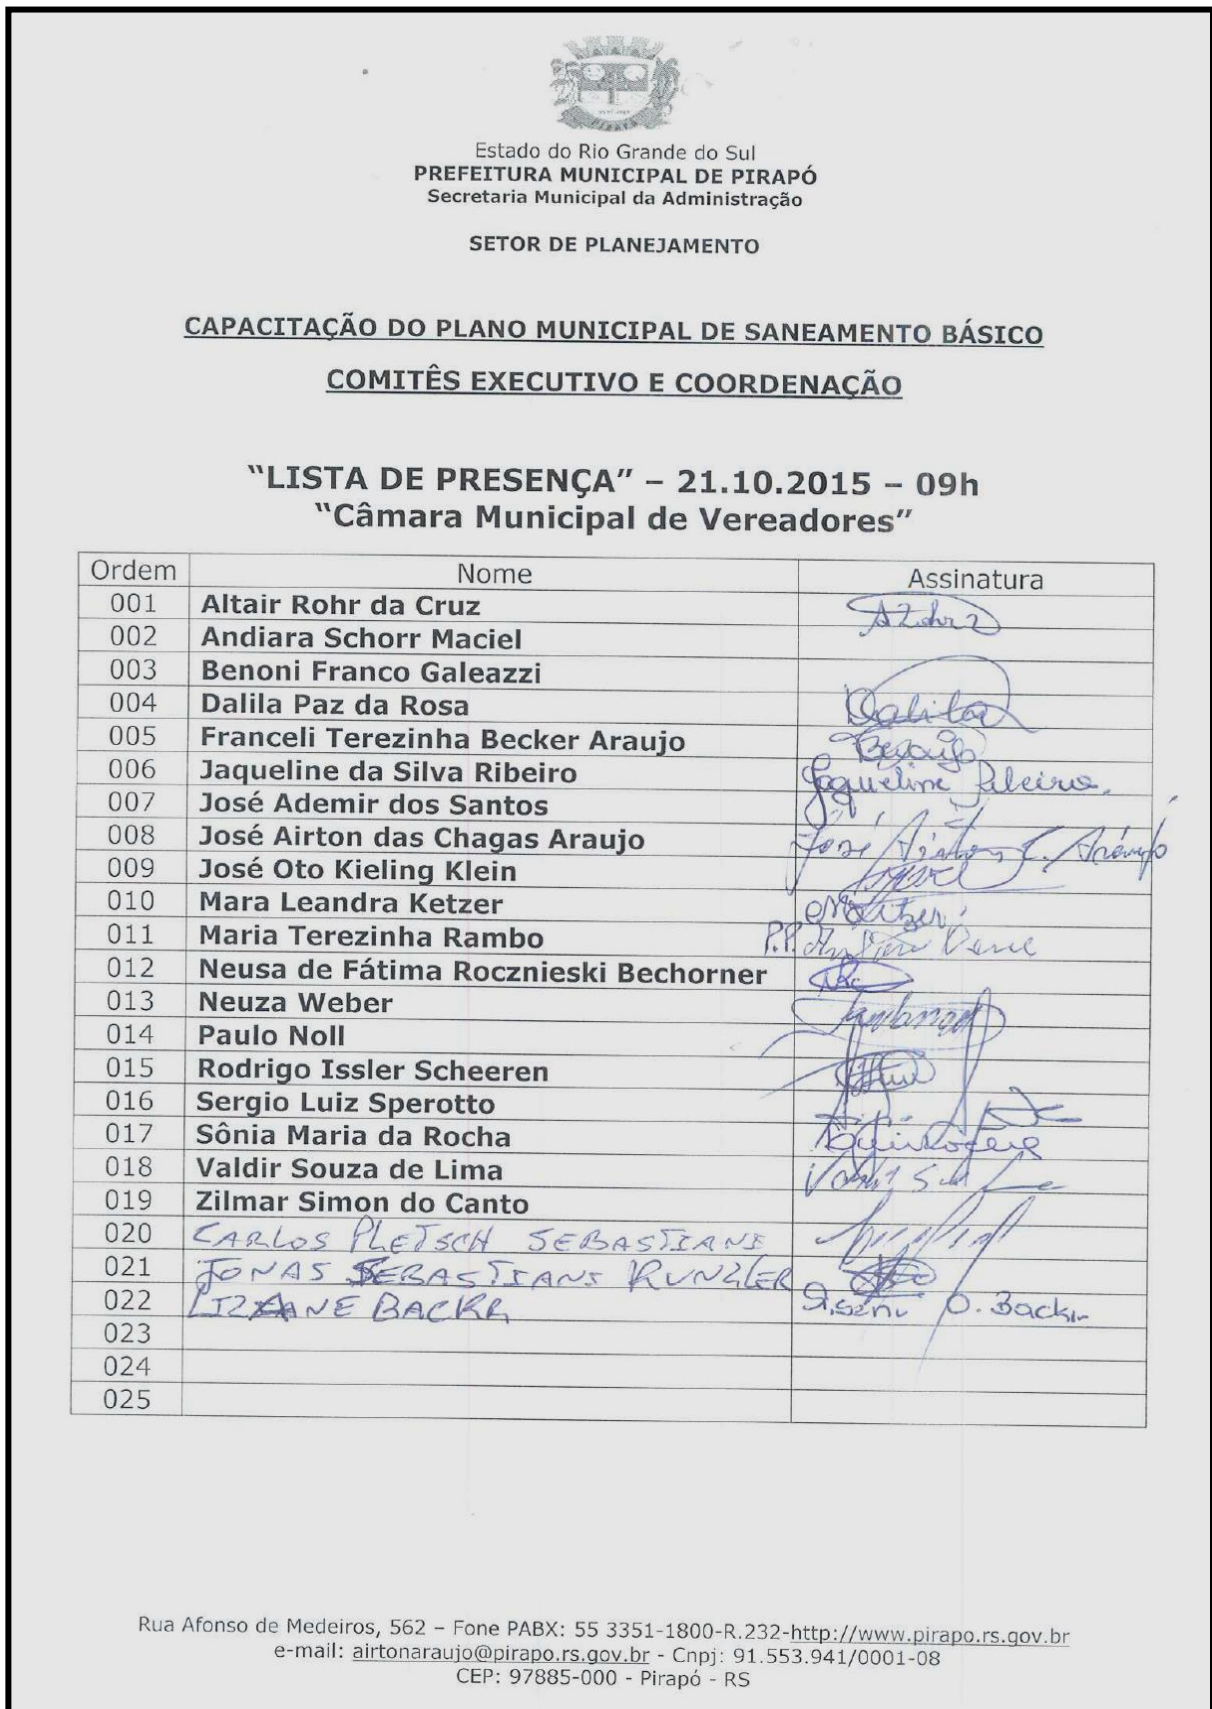 PIRAPÓ
Estado do Rio Grande do Sul
PREFEITURA MUNICIPAL DE PIRAPÓ
Secretaria Municipal da Administração
SETOR DE PLANEJAMENTO
CAPACITAÇÃO DO PLANO MUNICIPAL DE SANEAMENTO BÁSICO
COMITÊS EXECUTIVO E COORDENAÇÃO
“LISTA DE PRESENÇA” – 21.10.2015 – 09h
“Câmara Municipal de Vereadores”
Ordem Nome Assinatura
001 Altair Rohr da Cruz
002 Andiara Schorr Maciel
003 Benoni Franco Galeazzi
004 Dalila Paz da Rosa Dalila
005 Franceli Terezinha Becker Araujo
006 Jaqueline da Silva Ribeiro Jaqueline Ribeiro.
007 José Ademir dos Santos
008 José Airton das Chagas Araujo José Airton C. Araújo
009 José Oto Kieling Klein
010 Mara Leandra Ketzer
011 Maria Terezinha Rambo P.P.
012 Neusa de Fátima Rocznieski Bechorner
013 Neuza Weber
014 Paulo Noll
015 Rodrigo Issler Scheeren
016 Sergio Luiz Sperotto
017 Sônia Maria da Rocha
018 Valdir Souza de Lima
019 Zilmar Simon do Canto
020 CARLOS PLETSCH SEBASTIANI
021 JONAS SEBASTIANI KUNZLER
022 LIZIANE BACKR O. Backr
023
024
025
Rua Afonso de Medeiros, 562 – Fone PABX: 55 3351-1800-R.232-http://www.pirapo.rs.gov.br
e-mail: airtonaraujo@pirapo.rs.gov.br - Cnpj: 91.553.941/0001-08
CEP: 97885-000 - Pirapó - RS